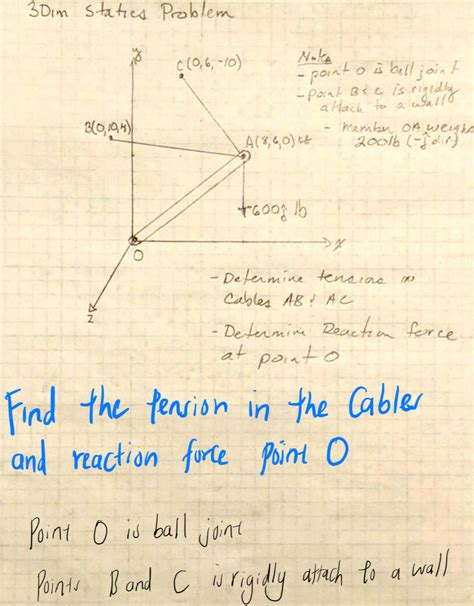 3Dim Statics Problem
y
C(0,6,-10)
Note
- point O is ball joint
- point B & C is rigidly
attach to a wall
- member OA weighs
200lb (-ĵ dir)
B(0,10,4)
A(8,6,0) ft
-600ĵ lb
O
x
z
- Determine tensions in
Cables AB & AC
- Determine Reaction force
at point O
Find the tension in the Cables
and reaction force point O
Point O is ball joint
Points B and C is rigidly attach to a wall